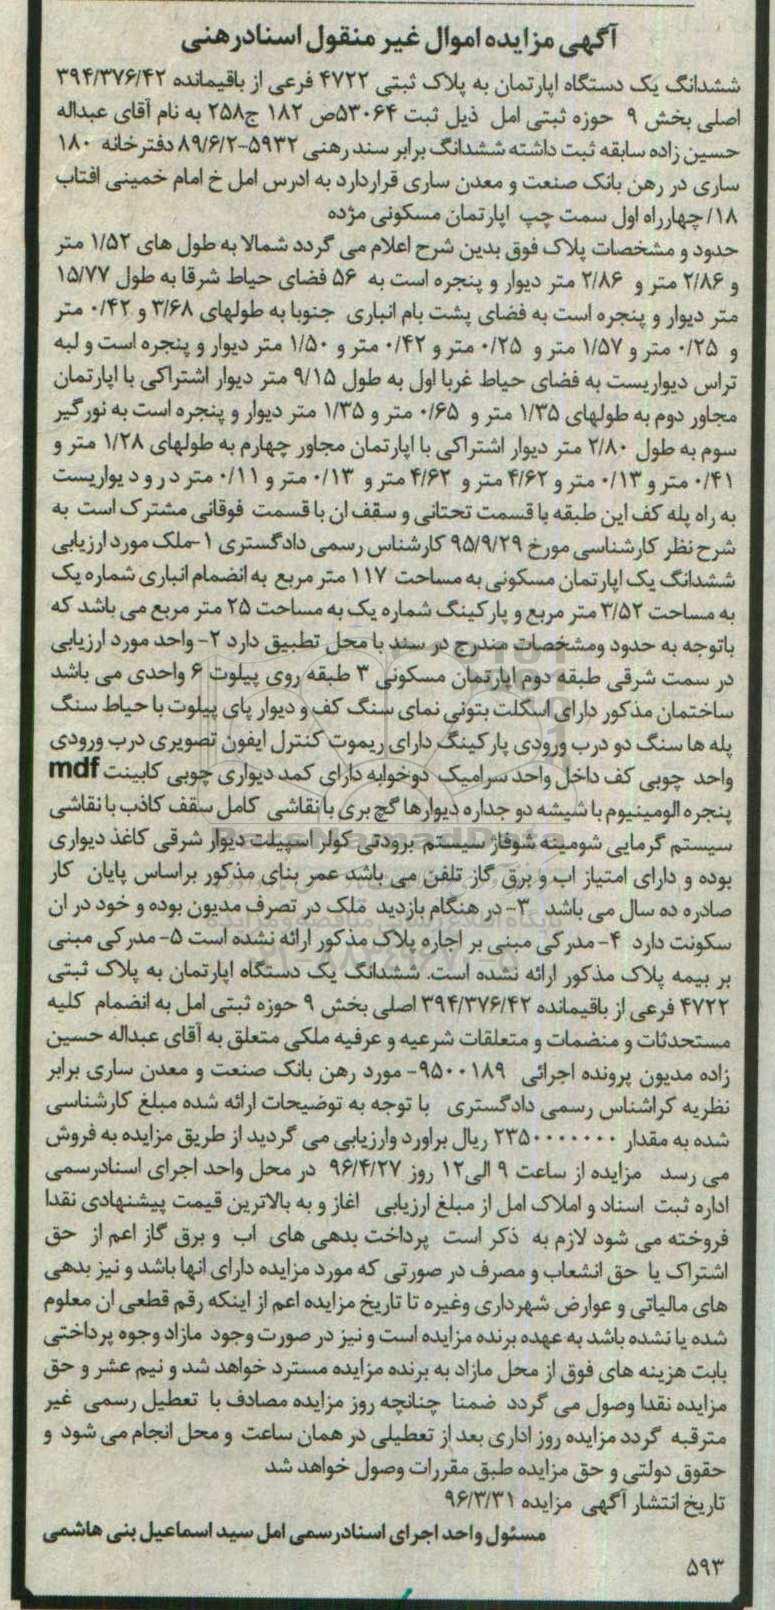 آگهی مزایده اموال غیر منقول اسناد رهنی
ششدانگ یک دستگاه اپارتمان به پلاک ثبتی ۴۷۲۲ فرعی از باقیمانده ۳۹۴/۳۷۶/۴۲
اصلی بخش ۹ حوزه ثبتی امل ذیل ثبت ۵۳۰۶۴ص ۱۸۲ ج۲۵۸ به نام آقای عبداله
حسین زاده سابقه ثبت داشته ششدانگ برابر سند رهنی ۵۹۳۲-۸۹/۶/۲ دفترخانه ۱۸۰
ساری در رهن بانک صنعت و معدن ساری قراردارد به ادرس امل خ امام خمینی افتاب
۱۸/ چهارراه اول سمت چپ اپارتمان مسکونی مژده
حدود و مشخصات پلاک فوق بدین شرح اعلام می گردد شمالا به طول های ۱/۵۲ متر
و ۲/۸۶ متر و ۲/۸۶ متر دیوار و پنجره است به ۵۶ فضای حیاط شرقا به طول ۱۵/۷۷
متر دیوار و پنجره است به فضای پشت بام انباری جنوبا به طولهای ۳/۶۸ و ۰/۴۲ متر
و ۰/۲۵ متر و ۱/۵۷ متر و ۰/۲۵ متر و ۰/۴۲ متر و ۱/۵۰ متر دیوار و پنجره است و لبه
تراس دیواریست به فضای حیاط غربا اول به طول ۹/۱۵ متر دیوار اشتراکی با اپارتمان
مجاور دوم به طولهای ۱/۳۵ متر و ۰/۶۵ متر و ۱/۳۵ متر دیوار و پنجره است به نورگیر
سوم به طول ۲/۸۰ متر دیوار اشتراکی با اپارتمان مجاور چهارم به طولهای ۱/۲۸ متر و
۰/۴۱ متر و ۰/۱۳ متر و ۴/۶۲ متر و ۴/۶۲ متر و ۰/۱۳ متر و ۰/۱۱ متر در و دیواریست
به راه پله کف این طبقه با قسمت تحتانی و سقف ان با قسمت فوقانی مشترک است به
شرح نظر کارشناسی مورخ ۹۵/۹/۲۹ کارشناس رسمی دادگستری ۱-ملک مورد ارزیابی
ششدانگ یک اپارتمان مسکونی به مساحت ۱۱۷ متر مربع به انضمام انباری شماره یک
به مساحت ۳/۵۲ متر مربع و پارکینگ شماره یک به مساحت ۲۵ متر مربع می باشد که
باتوجه به حدود ومشخصات مندرج در سند با محل تطبیق دارد ۲- واحد مورد ارزیابی
در سمت شرقی طبقه دوم اپارتمان مسکونی ۳ طبقه روی پیلوت ۶ واحدی می باشد
ساختمان مذکور دارای اسکلت بتونی نمای سنگ کف و دیوار پای پیلوت با حیاط سنگ
پله ها سنگ دو درب ورودی پارکینگ دارای ریموت کنترل ایفون تصویری درب ورودی
واحد چوبی کف داخل واحد سرامیک دوخوابه دارای کمد دیواری چوبی کابینت mdf
پنجره الومینیوم با شیشه دو جداره دیوارها گچ بری با نقاشی کامل سقف کاذب با نقاشی
سیستم گرمایی شومینه شوفاژ سیستم برودتی کولر اسپیلت دیوار شرقی کاغذ دیواری
بوده و دارای امتیاز اب و برق گاز تلفن می باشد عمر بنای مذکور براساس پایان کار
صادره ده سال می باشد ۳- در هنگام بازدید ملک در تصرف مدیون بوده و خود در ان
سکونت دارد ۴- مدرکی مبنی بر اجاره پلاک مذکور ارائه نشده است ۵- مدرکی مبنی
بر بیمه پلاک مذکور ارائه نشده است. ششدانگ یک دستگاه اپارتمان به پلاک ثبتی
۴۷۲۲ فرعی از باقیمانده ۳۹۴/۳۷۶/۴۲ اصلی بخش ۹ حوزه ثبتی امل به انضمام کلیه
مستحدثات و منضمات و متعلقات شرعیه و عرفیه ملکی متعلق به آقای عبداله حسین
زاده مدیون پرونده اجرائی ۹۵۰۰۱۸۹- مورد رهن بانک صنعت و معدن ساری برابر
نظریه کراشناس رسمی دادگستری با توجه به توضیحات ارائه شده مبلغ کارشناسی
شده به مقدار ۲۳۵۰۰۰۰۰۰۰ ریال براورد وارزیابی می گردید از طریق مزایده به فروش
می رسد مزایده از ساعت ۹ الی۱۲ روز ۹۶/۴/۲۷ در محل واحد اجرای اسنادرسمی
اداره ثبت اسناد و املاک امل از مبلغ ارزیابی اغاز و به بالاترین قیمت پیشنهادی نقدا
فروخته می شود لازم به ذکر است پرداخت بدهی های اب و برق گاز اعم از حق
اشتراک یا حق انشعاب و مصرف در صورتی که مورد مزایده دارای انها باشد و نیز بدهی
های مالیاتی و عوارض شهرداری وغیره تا تاریخ مزایده اعم از اینکه رقم قطعی ان معلوم
شده یا نشده باشد به عهده برنده مزایده است و نیز در صورت وجود مازاد وجوه پرداختی
بابت هزینه های فوق از محل مازاد به برنده مزایده مسترد خواهد شد و نیم عشر و حق
مزایده نقدا وصول می گردد ضمنا چنانچه روز مزایده مصادف با تعطیل رسمی غیر
مترقبه گردد مزایده روز اداری بعد از تعطیلی در همان ساعت و محل انجام می شود و
حقوق دولتی و حق مزایده طبق مقررات وصول خواهد شد
تاریخ انتشار آگهی مزایده ۹۶/۳/۳۱
مسئول واحد اجرای اسنادرسمی امل سید اسماعیل بنی هاشمی
۵۹۳